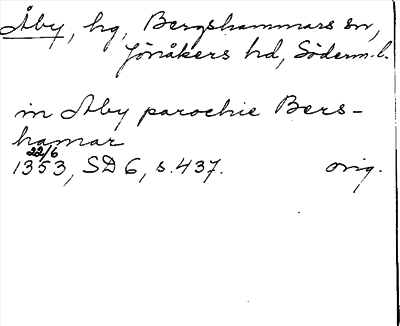 Åby, hg, Bergshammars sn,
Jönåkers hd, Söderm.l.
in Aby parochie Bers-
hamar
22/6
1353, SD 6, s.437. orig.